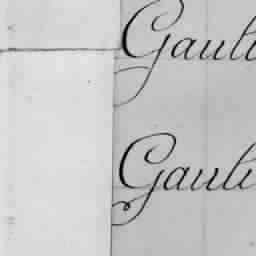 Gaul
Gaul